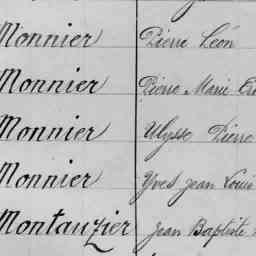 Monnier Pierre Léon
Monnier Pierre Marie
Monnier Ulysse Pierre
Monnier Yves Jean Louis
Montauzier Jean Baptiste